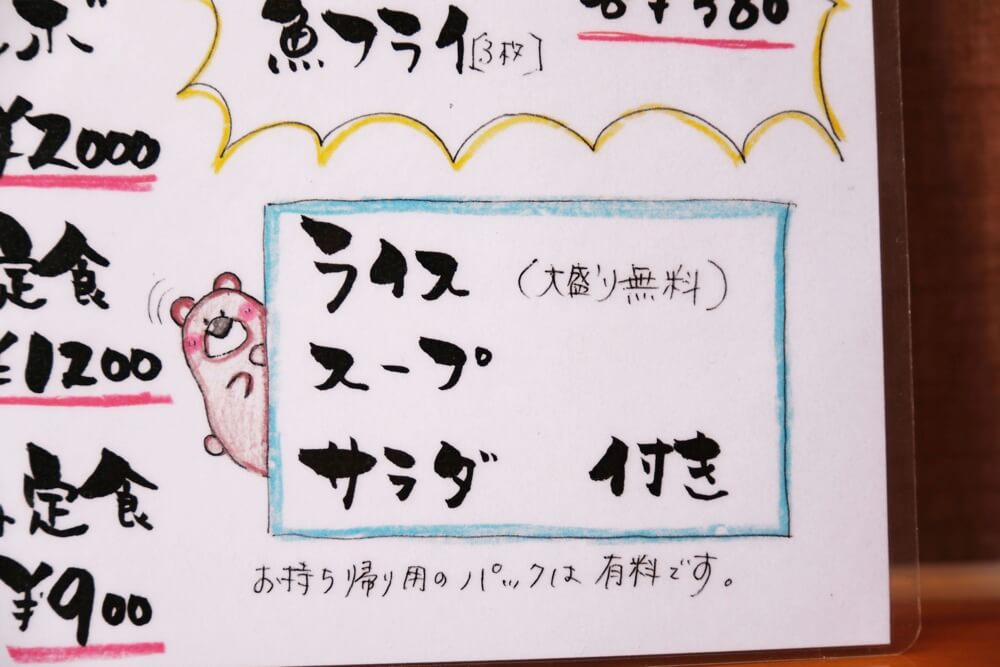 ¥2000
定食
¥1200
定食
¥900
魚フライ[3枚]
ライス (大盛り無料)
スープ
サラダ 付き
お持ち帰り用のパックは 有料です。